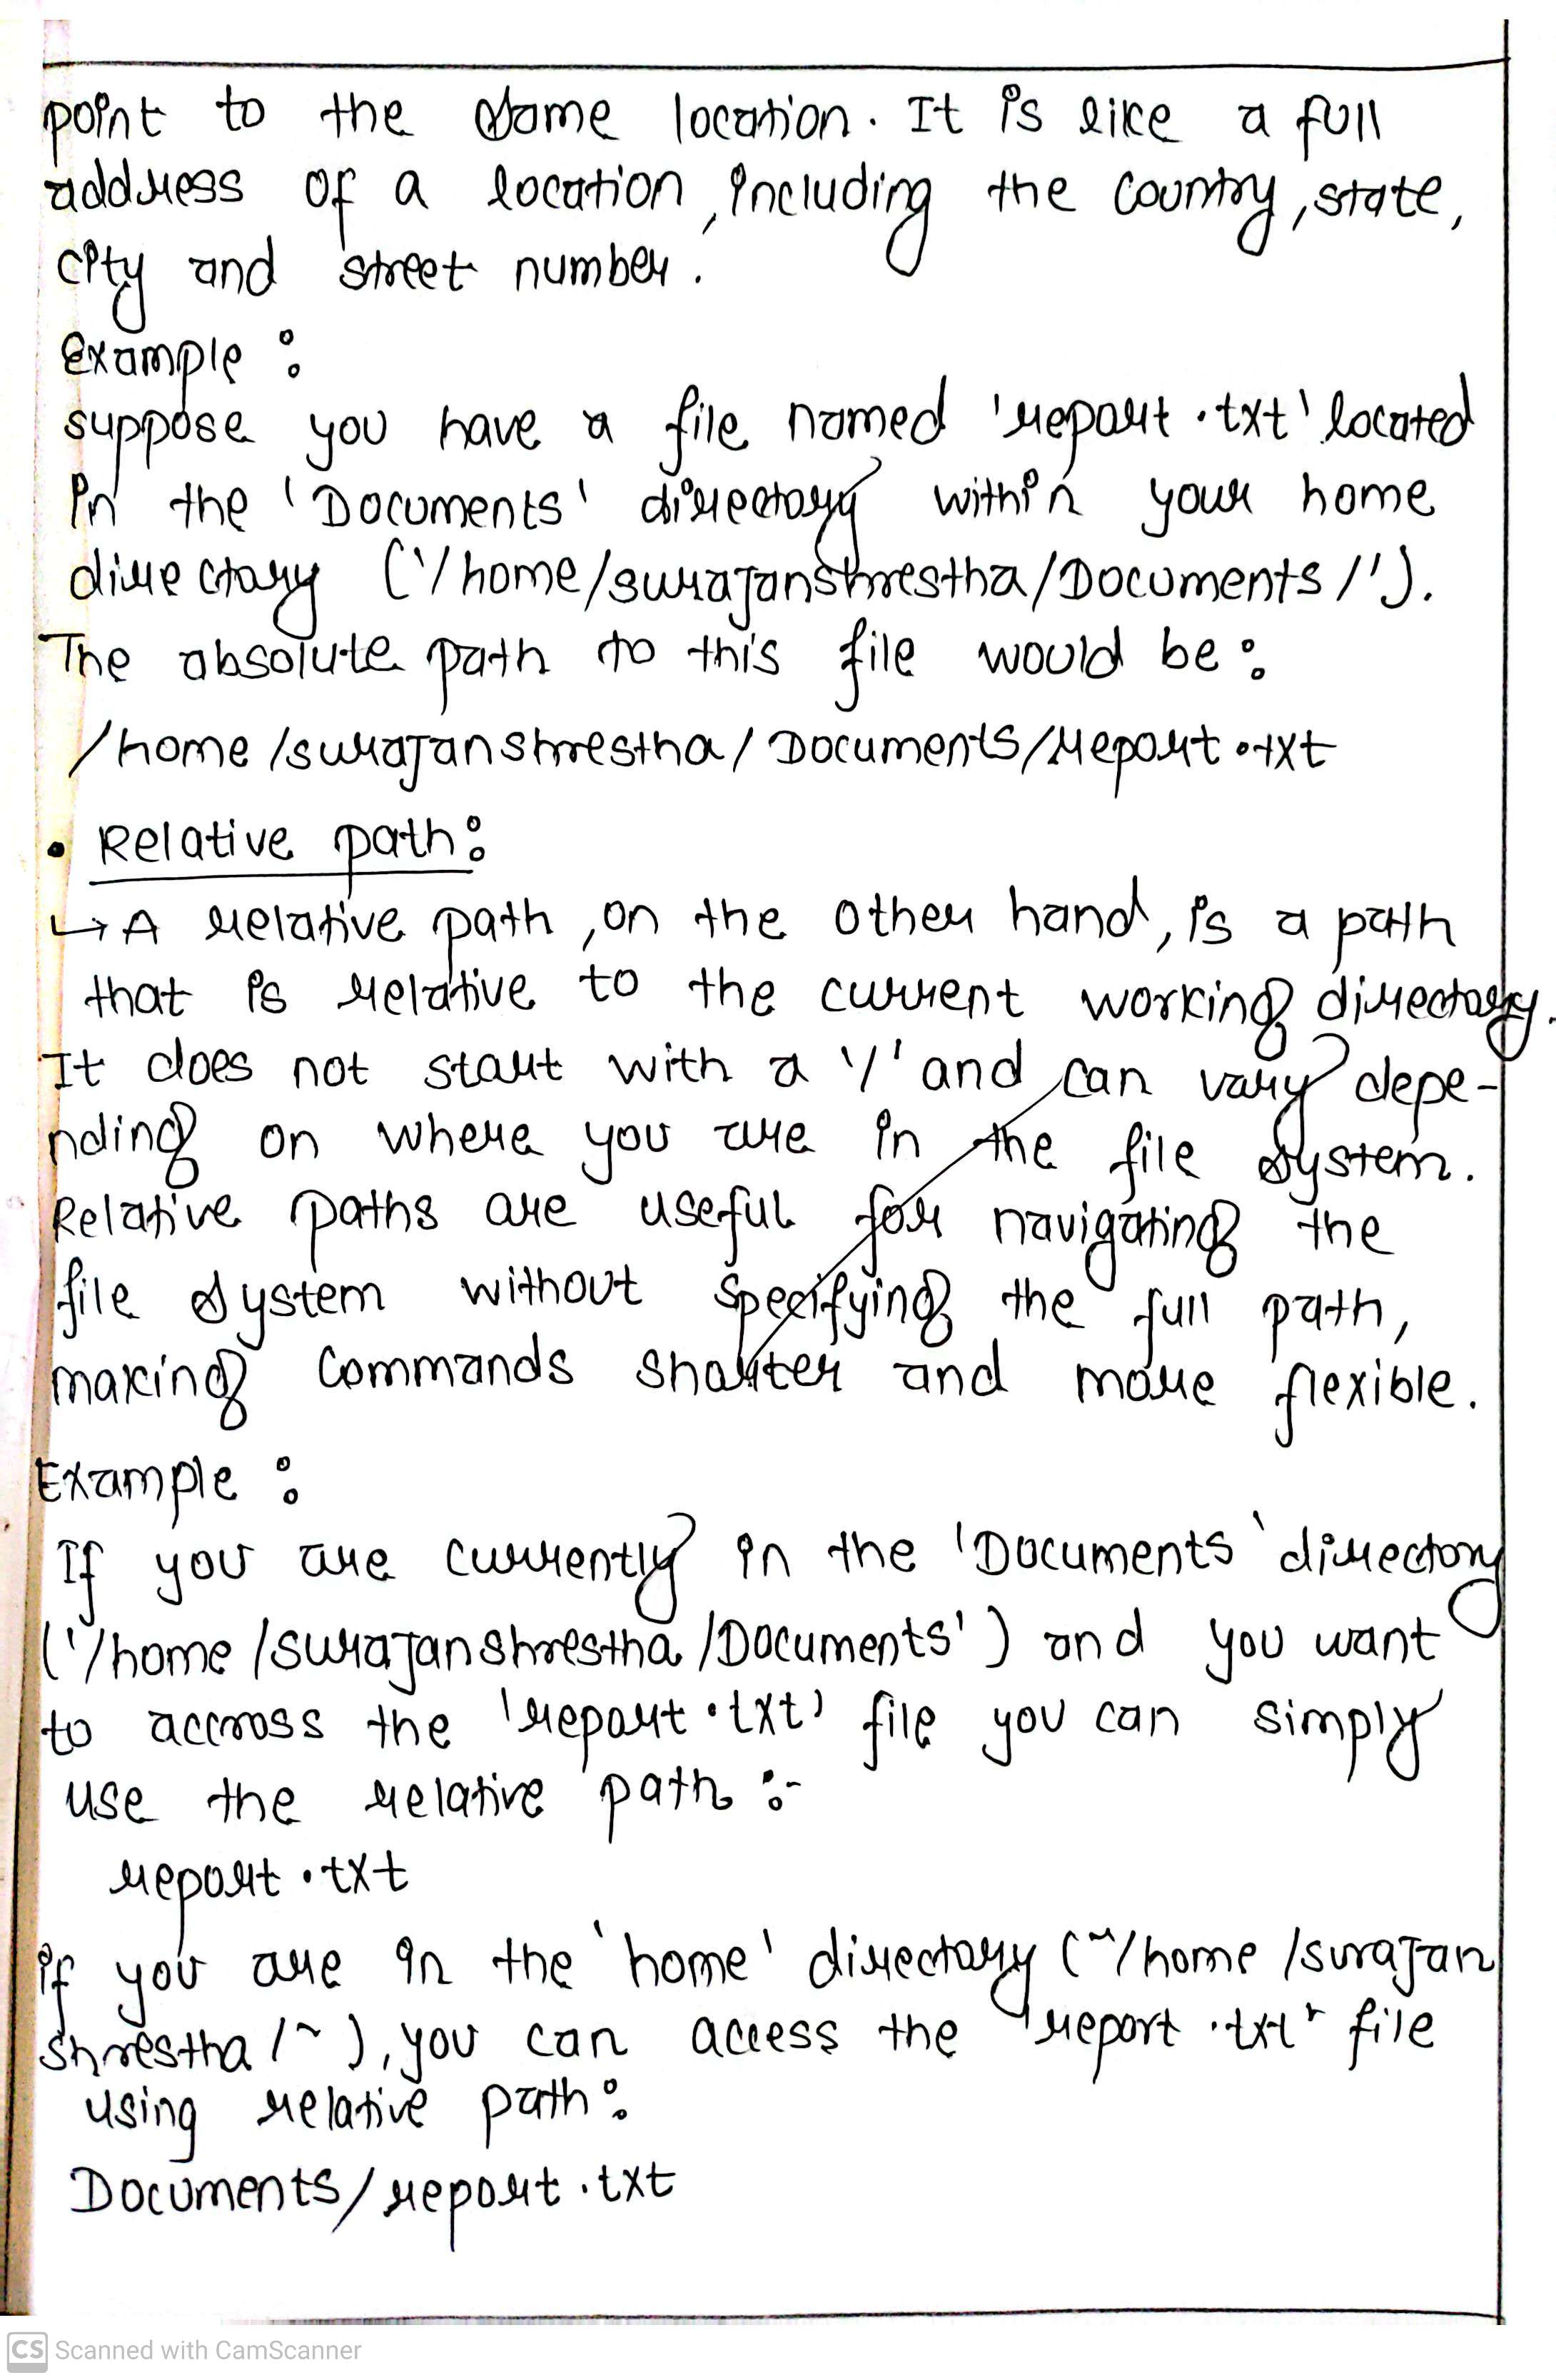 point to the same location. It is like a full
address of a location, including the country, state,
city and street number.
Example :
suppose you have a file named 'report.txt' located
in the 'Documents' directory within your home
directory ('/home/surajanshrestha/Documents/').
The absolute path to this file would be :
/home/surajanshrestha/Documents/report.txt
• Relative path :
↳ A relative path, on the other hand, is a path
that is relative to the current working directory.
It does not start with a '/' and can vary depe-
nding on where you are in the file system.
Relative paths are useful for navigating the
file system without specifying the full path,
making commands shorter and more flexible.
Example :
If you are currently in the 'Documents' directory
('/home/surajanshrestha/Documents') and you want
to accross the 'report.txt' file you can simply
use the relative path :-
report.txt
if you are in the 'home' directory ("/home/surajan
shrestha/~), you can access the "report.txt" file
using relative path :
Documents/report.txt
CS Scanned with CamScanner